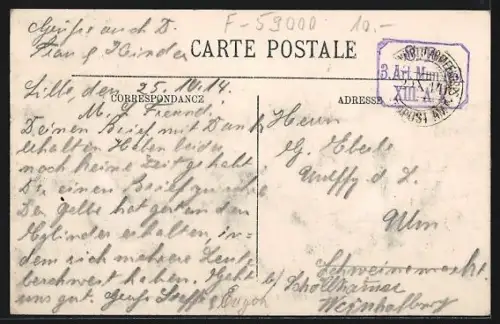 Grüße auch D.
Frau & Kinder
F-59000 10.-
CARTE POSTALE
3. Art. Mun.
XIII. A.
CORRESPONDANCE
ADRESSE
Lille, den 25.10.14.
M. l. Freund!
Deinen Brief mit Dank
erhalten. Haben leider
noch keine Zeit gehabt
Dir einen Brief
Der Gelbe hat gestern den
Zylinder erhalten, in-
dem sich mehrere Leute
beschwert haben. Geht
uns gut. Gruß Steff &
Herrn
G. Eberle
d. L.
Ulm
Schweinemarkt.
b/ Schöllhammer